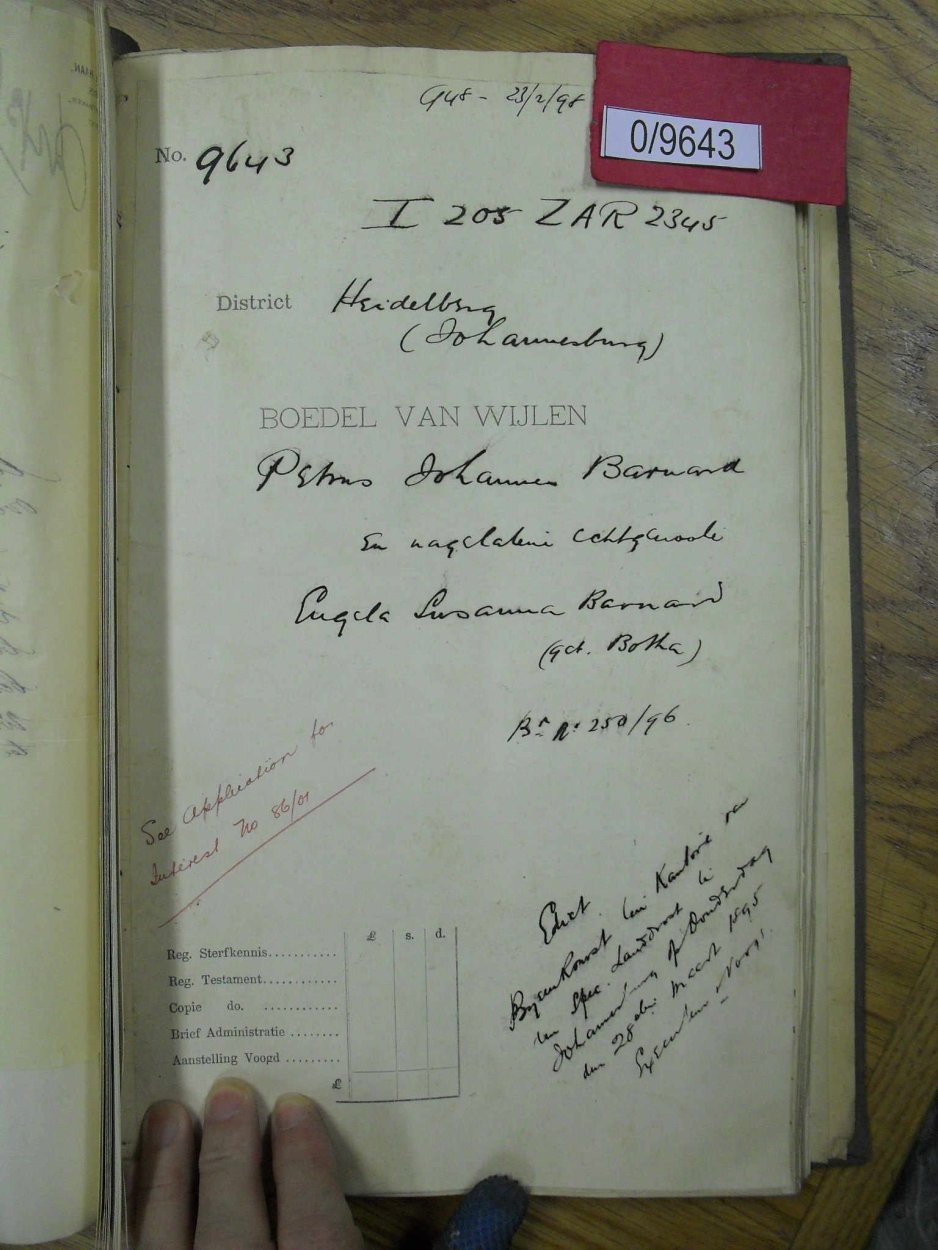 948 - 23/2/98
0/9643
No. 9643
I 205 ZAR 2345
District Heidelberg
(Johannesburg)
BOEDEL VAN WIJLEN
Petrus Johannes Barnard
En nagelatene echtgenoote
Engela Susanna Barnard
(geb. Botha)
Br No 250/96
See Application for
Interest No 86/01
Edict
Byeenkomst ten Kantore van
den Spec. Landdrost te
Johannesburg op Donderdag
den 28sten Maart 1895
Executeur Voogd
£ s. d.
Reg. Sterfkennis...........
Reg. Testament............
Copie do. ............
Brief Administratie ........
Aanstelling Voogd .........
£